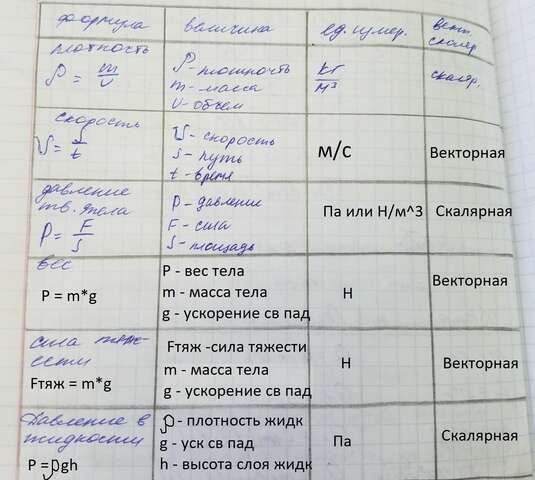 формула величина ед. измер. вект. скаляр
плотность
ρ = m/v
ρ - плотность
m - масса
v - объем
кг/м³
скаляр.
скорость
υ = S/t
υ - скорость
S - путь
t - время
м/с
Векторная
давление
тв. тела
P = F/S
P - давление
F - сила
S - площадь
Па или Н/м^3
Скалярная
вес
P = m*g
P - вес тела
m - масса тела
g - ускорение св пад
Н
Векторная
сила тяжести
Fтяж = m*g
Fтяж -сила тяжести
m - масса тела
g - ускорение св пад
Н
Векторная
Давление в
жидкости
P = ρgh
ρ - плотность жидк
g - уск св пад
h - высота слоя жидк
Па
Скалярная